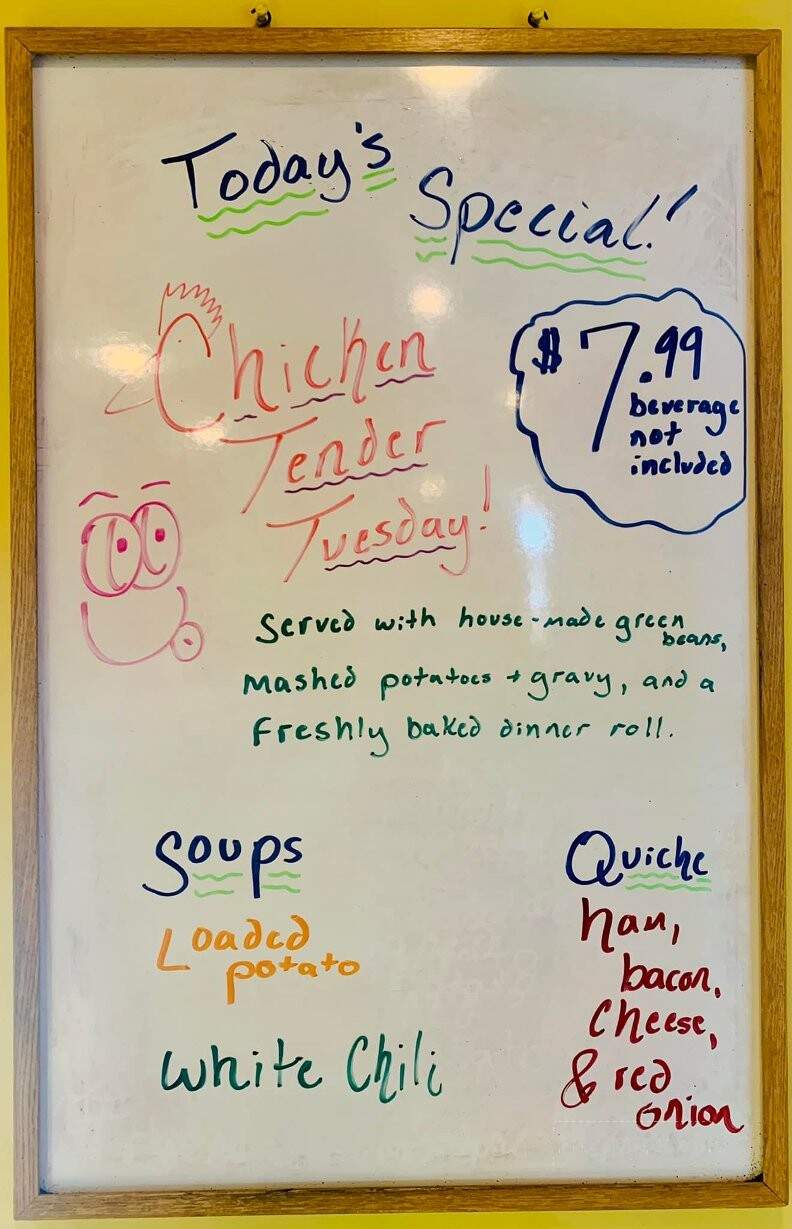 Today's
Special!
Chicken
Tender
Tuesday!
$7.99
beverage
not
included
Served with house-made green
beans,
mashed potatoes + gravy, and a
freshly baked dinner roll.
Soups
Loaded
potato
White Chili
Quiche
ham,
bacon,
cheese,
& red
onion